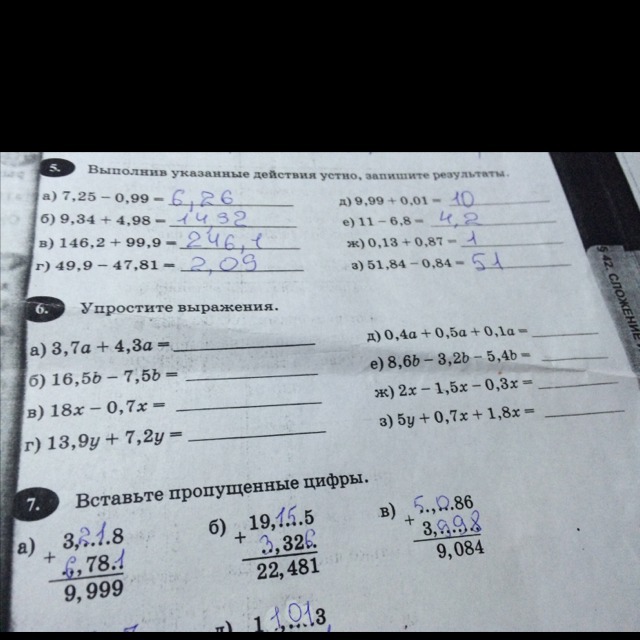 5. Выполнив указанные действия устно, запишите результаты.
а) 7,25 − 0,99 = 6,26
д) 9,99 + 0,01 = 10
б) 9,34 + 4,98 = 1432
е) 11 − 6,8 = 4,2
в) 146,2 + 99,9 = 246,1
ж) 0,13 + 0,87 = 1
г) 49,9 − 47,81 = 2,09
з) 51,84 − 0,84 = 51
§ 42. СЛОЖЕНИЕ
6. Упростите выражения.
а) 3,7a + 4,3a =
д) 0,4a + 0,5a + 0,1a =
б) 16,5b − 7,5b =
е) 8,6b − 3,2b − 5,4b =
в) 18x − 0,7x =
ж) 2x − 1,5x − 0,3x =
г) 13,9y + 7,2y =
з) 5y + 0,7x + 1,8x =
7. Вставьте пропущенные цифры.
а) 3,21.8
+ 6,781
9,999
б) 19,15.5
+ 3,326
22,481
в) 5,0.86
+ 3,998
9,084
д) 11,01.3